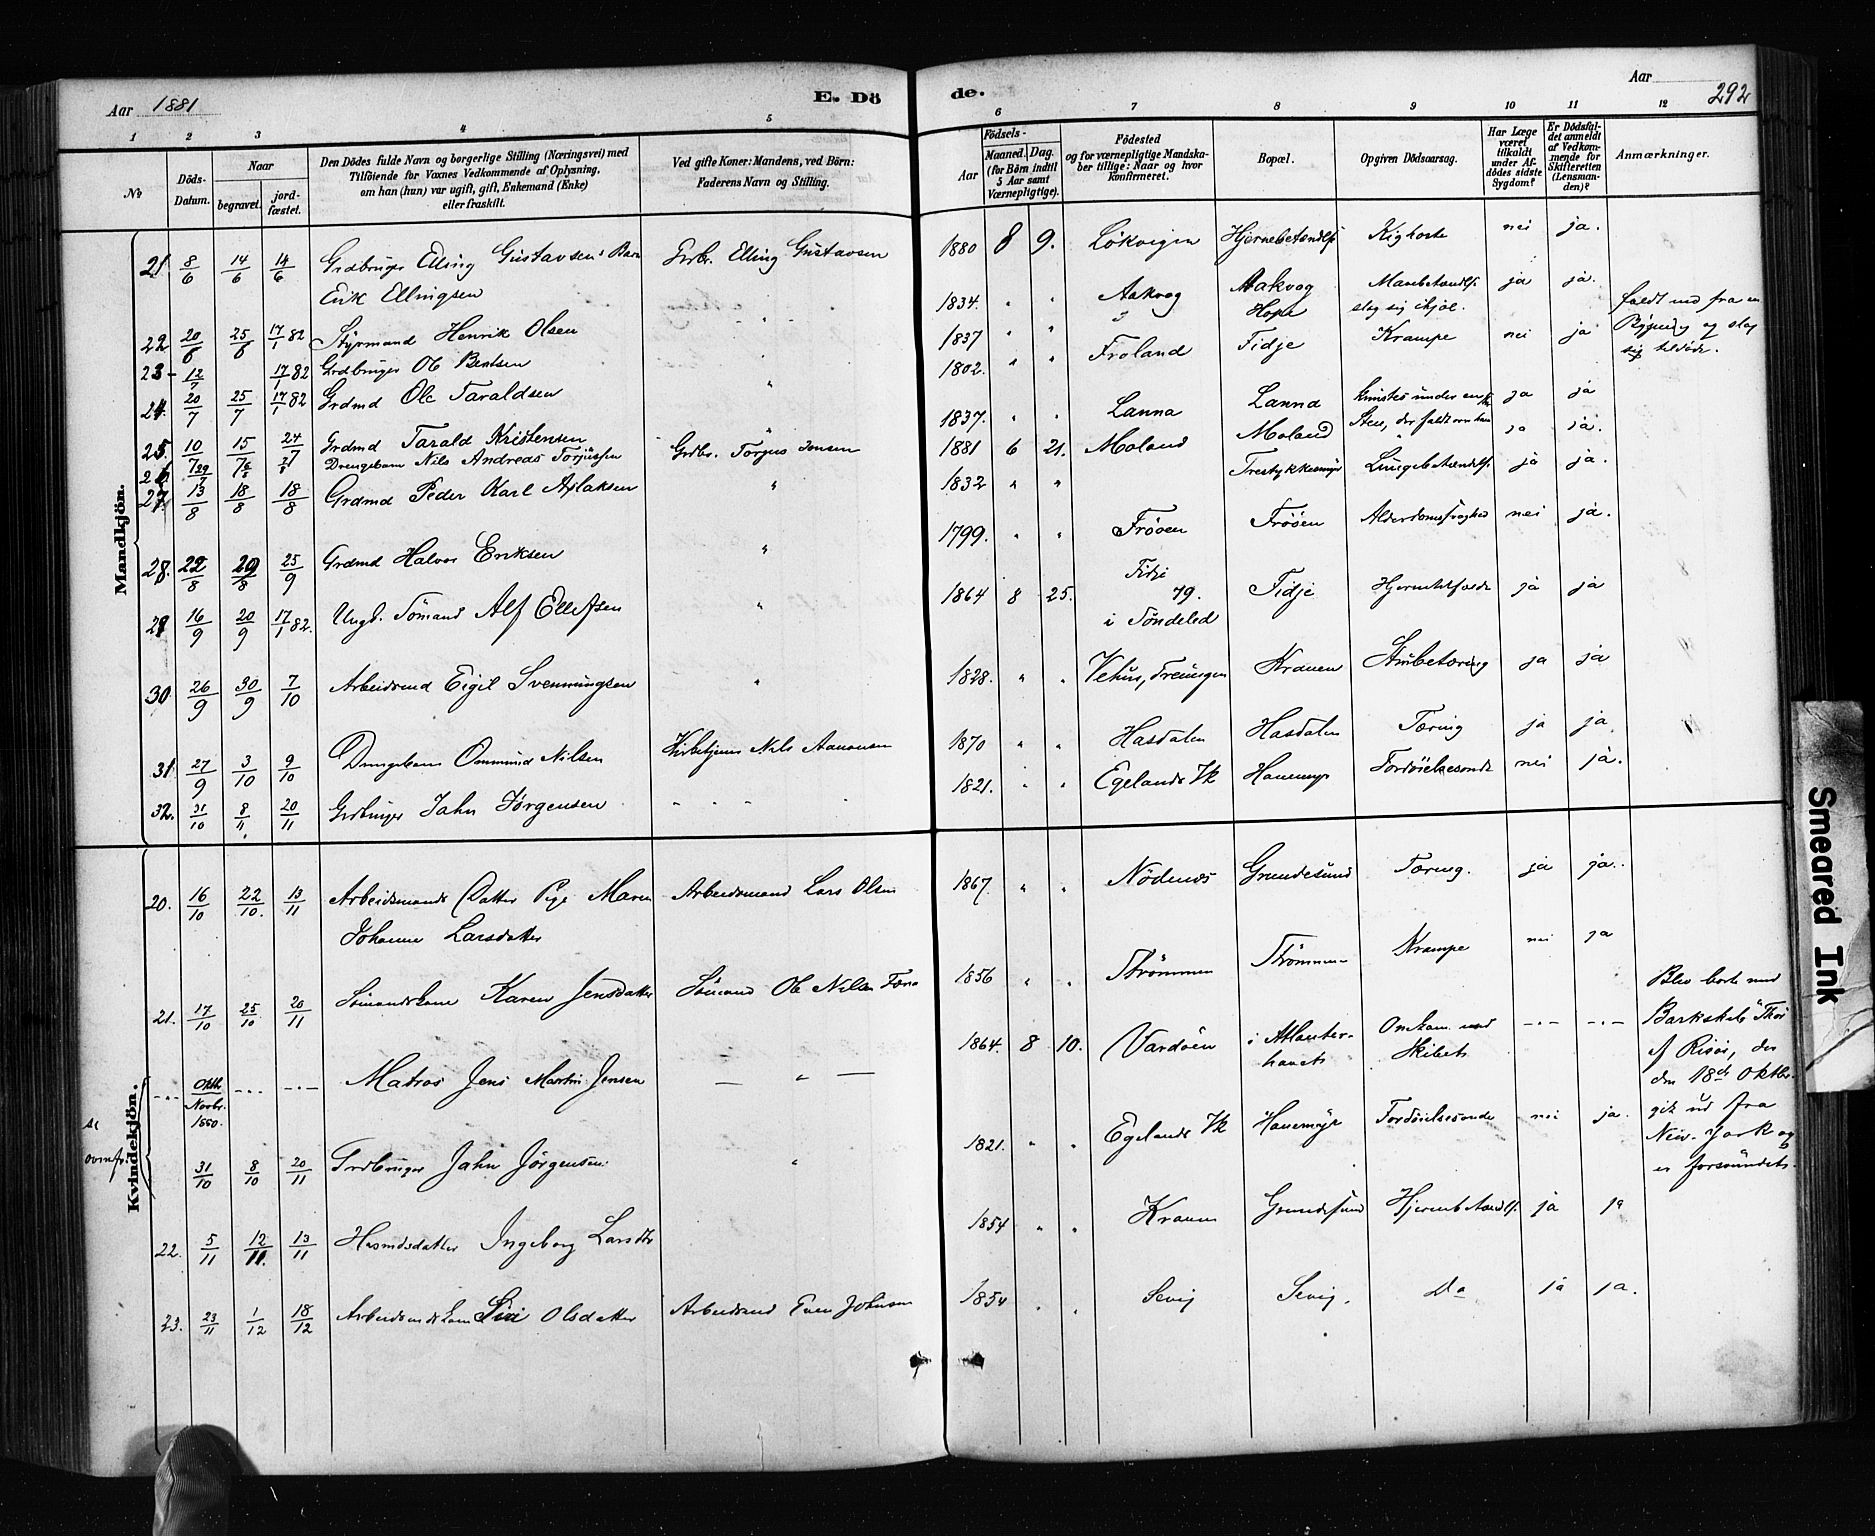 Aar 1881
E. Dö
de.
Aar
292
1 2 3 4 5
6 7 8 9 10 11 12
No
Döds-Datum.
Naar
begravet.
jord-fæstet.
Den Dödes fulde Navn og borgerlige Stilling (Næringsvei) med
Tilföiende for Voxnes Vedkommende af Oplysning,
om han (hun) var ugift, gift, Enkemand (Enke)
eller fraskilt.
Ved gifte Koner: Mandens, ved Börn:
Faderens Navn og Stilling.
Födsels-
Aar
Maaned. Dag.
(for Börn indtil
5 Aar samt
Værnepligtige).
Födested
og for værnepligtige Mandska-
ber tillige: Naar og hvor
konfirmeret.
Bopæl.
Opgiven Dödsaarsag.
Har Læge
været
tilkaldt
under Af-
dödes sidste
Sygdom?
Er Dödsfal-
det anmeldt
af Vedkom-
mende for
Skifteretten
(Lensman-
den)?
Anmærkninger.
Mandkjön.
21. 8/6 14/6 14/6 Grdbruger Elling Gustavsens Barn Grbr. Elling Gustavsen
Erik Ellingsen
22 20/6 25/6 17/1 82 Styrmand Henrik Olsen
23 - 12/7 17/1 82 Grdbruger Ob Bentsen
24. 20/7 25/7 17/1 82 Grdmd Ole Taraldsen
25. 10/7 15/7 24/7 Grdmd Tarald Kristensen
26 29/7 Drengebarn Nils Andreas Torjussen Grdbr. Torjus Jensen
27. 13/8 18/8 18/8 Grdmd Peder Karl Aslaksen
28. 22/8 29/8 25/9 Grdmd Halvor Eriksen
29 16/9 20/9 17/1 82. Ungk. Sömand Alf Ellefsen
30. 26/9 30/9 7/10 Arbeidsmd Eigil Svenningsen
31. 27/9 3/10 9/10 Drengebarn Ommund Nilsen Kirketjener Nils Aanonsen
32. 31/10 8/11. 20/11 Grdbruger Jahn Jörgensen
1880 8 9. Lökvigen Hjernebetændelse Kighoste nei ja.
1834. " " Aakvog Aakvog Mavebetændelse ja ja.
Hope slog sig ihjel. faldt ned fra en
1837 " " Froland Fidje Krampe nei ja Bygning og slog
1802. " " sig tildöde.
1837. " " Lanna Lanna Knustes under en Sten, der faldt over ham ja ja
1881 6 21. Moland Moland ja ja.
1832 " " Trestykkesmyr Lungebetændelse ja ja.
1799. " " Fröoen Fröoen Alderdomssvaghed nei ja.
Fidje
1864 8 25. 79. Fidje ja ja
i Söndeled
1828. " " Vehus, Treungen Kranen ja ja
1870 " " Hasdalen Hasdalen Tæring ja ja
1821. " " Egelands Vk Hanemyr Fordöielsessonde nei ja.
Kvindekjön.
20. 16/10 22/10. 13/11 Arbeidsmands Datter Pige Maren Arbeidsmand Lars Olsen
Johanne Larsdatter
21. 17/10 25/10 20/11 Sömandskone Karen Jensdatter Sömand Ole Nilsen
-"- Oktbr. Novbr. 1880. -"- -"- Matros Jens Martin Jensen — " —
se
ovenfor
31/10 8/10 20/11 Grdbruger Jahn Jörgensen "
22. 5/11 12/11. 13/11 Husmdsdatter Ingeborg Larsdtr
23. 23/11 1/12 18/12 Arbeidsmdskone Siri Olsdatter Arbeidsmd Even Johnsen
1867. " " Nödenes Grundesund Tæring. ja ja.
1856 " " Strömmen Strömmen Krampe nei ja
1864. 8 10. Vardöen i Atlanter-havet Omkom med Skibet -"- -"- Blev borte med
Barkskib "Thor"
af Risör, der
den 18de Oktbr.
gik ud fra
New-York og
er forsvundet.
1821. " " Egelands Vk Hanemyr Fordöielsessonde nei ja.
1854 " " Kranen Grundesund Hjernebetændelse ja ja
1854 " " Sevig Sevig. Do ja ja.
Smeared Ink